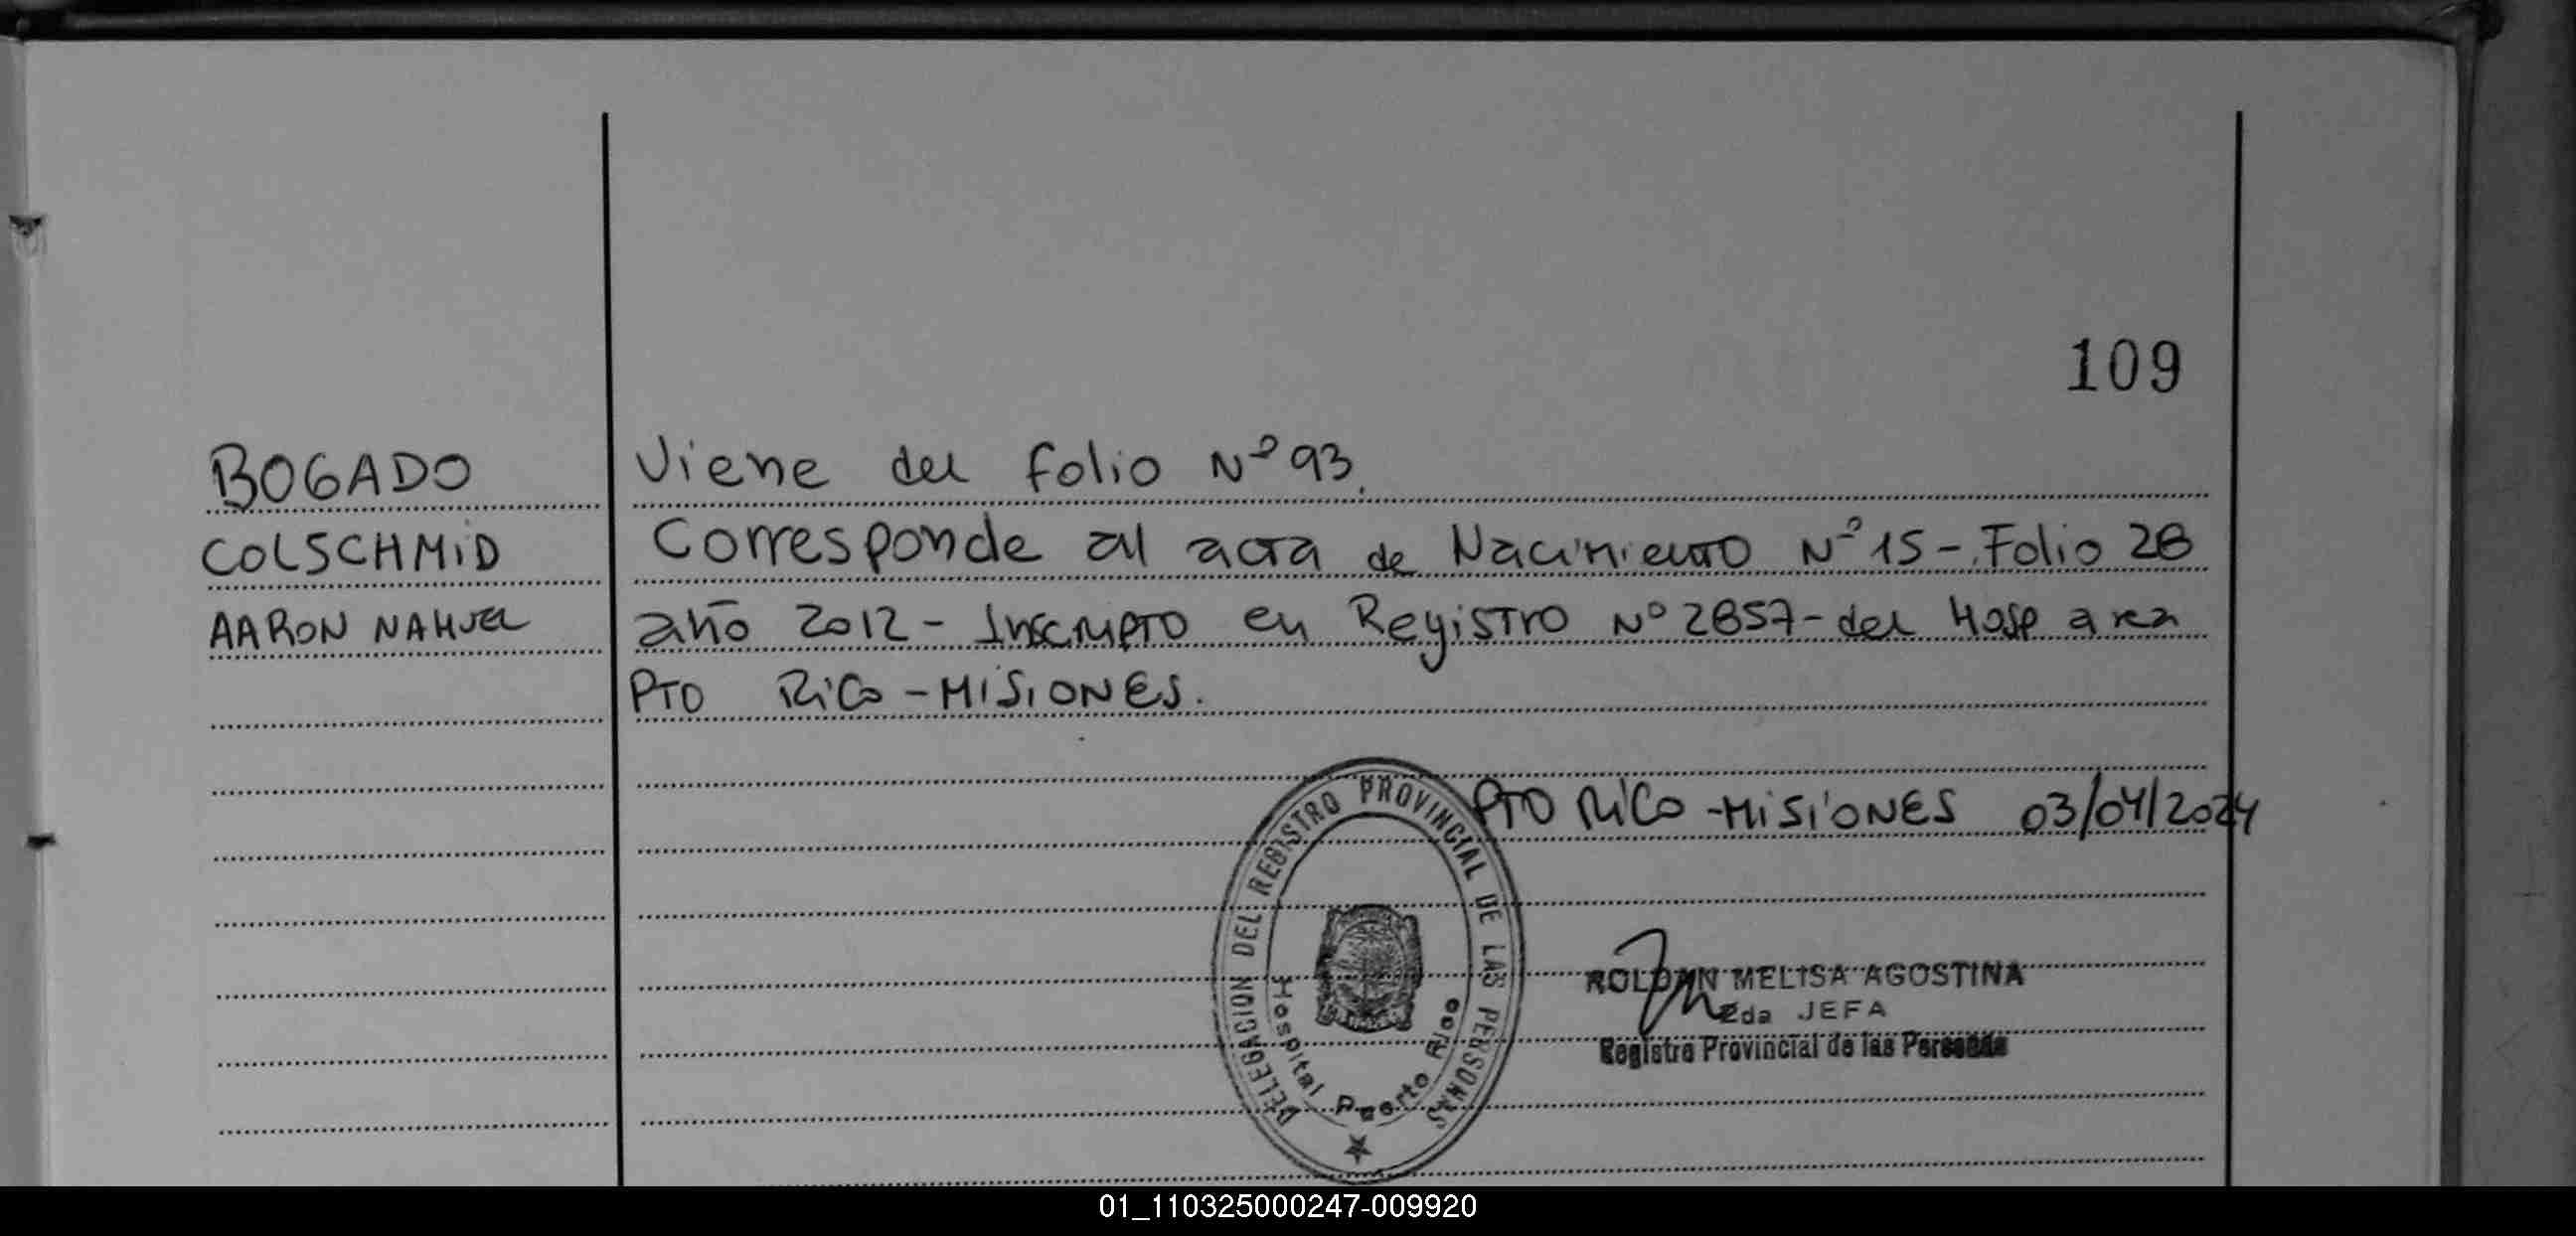 109
BOGADO
COLSCHMID
AARON NAHUEL
Viene del folio Nº 93.
Corresponde al acta de Nacimiento Nº 15 - Folio 28
año 2012 - Inscripto en Registro Nº 2857 - del Hosp area
PTO RiCo - MISIONES.
PTO RiCo - MISIONES 03/04/2024
DELEGACION DEL REGISTRO PROVINCIAL DE LAS PERSONAS
Hospital Puerto Rico
ROLDAN MELISA AGOSTINA
2da JEFA
Registro Provincial de las Personas
01_110325000247-009920